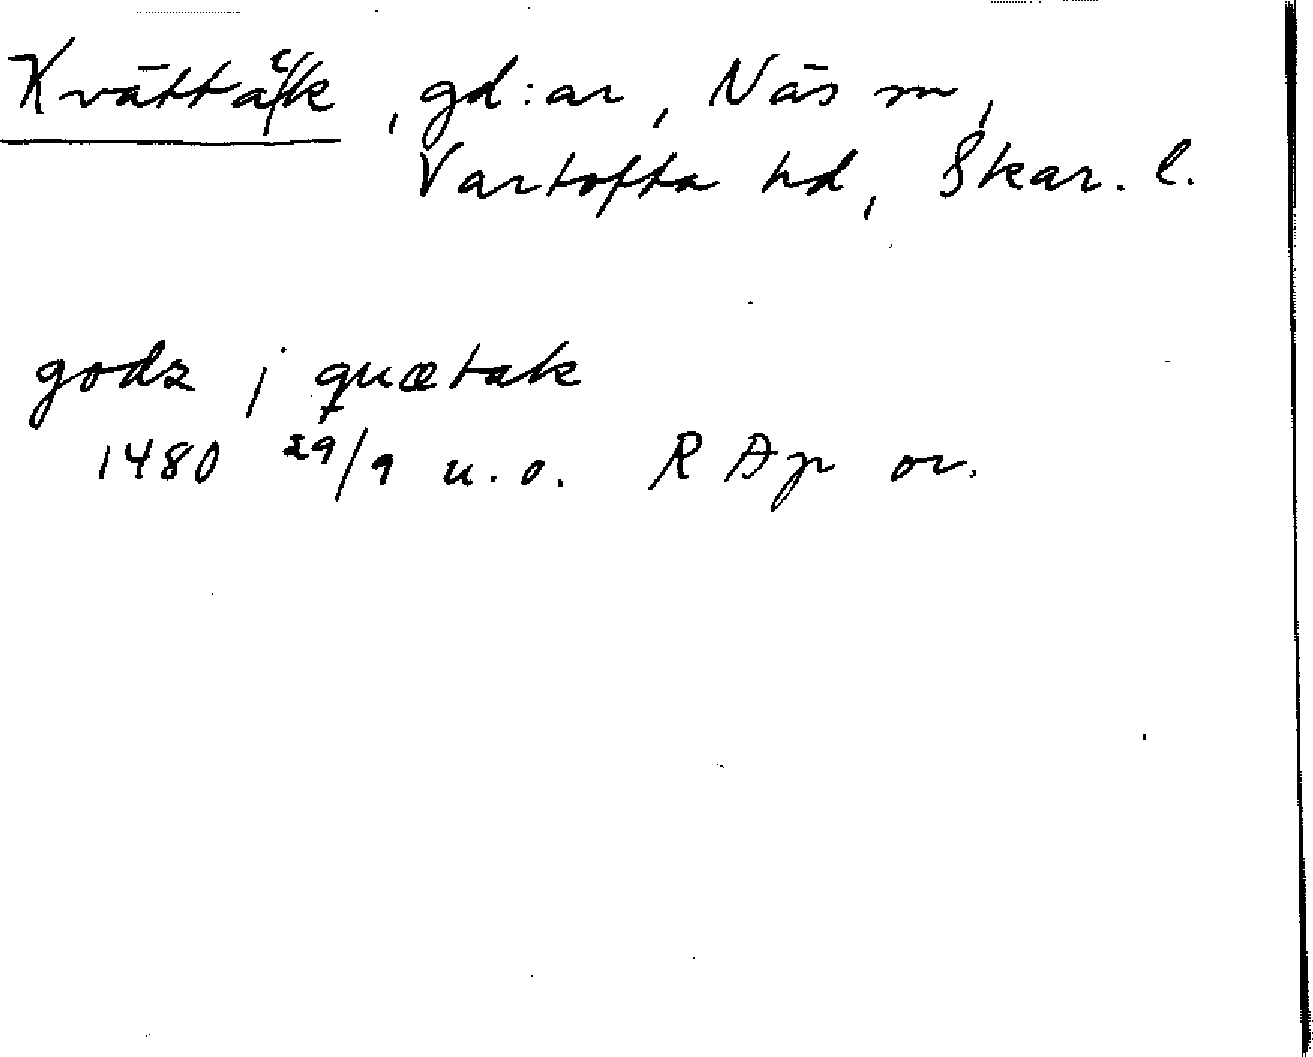 Kvättåk, gd:ar, Näs sn,
Vartofta hd, Skar. l.
godz j quætak
1480 29/9 u.o. RAp or.